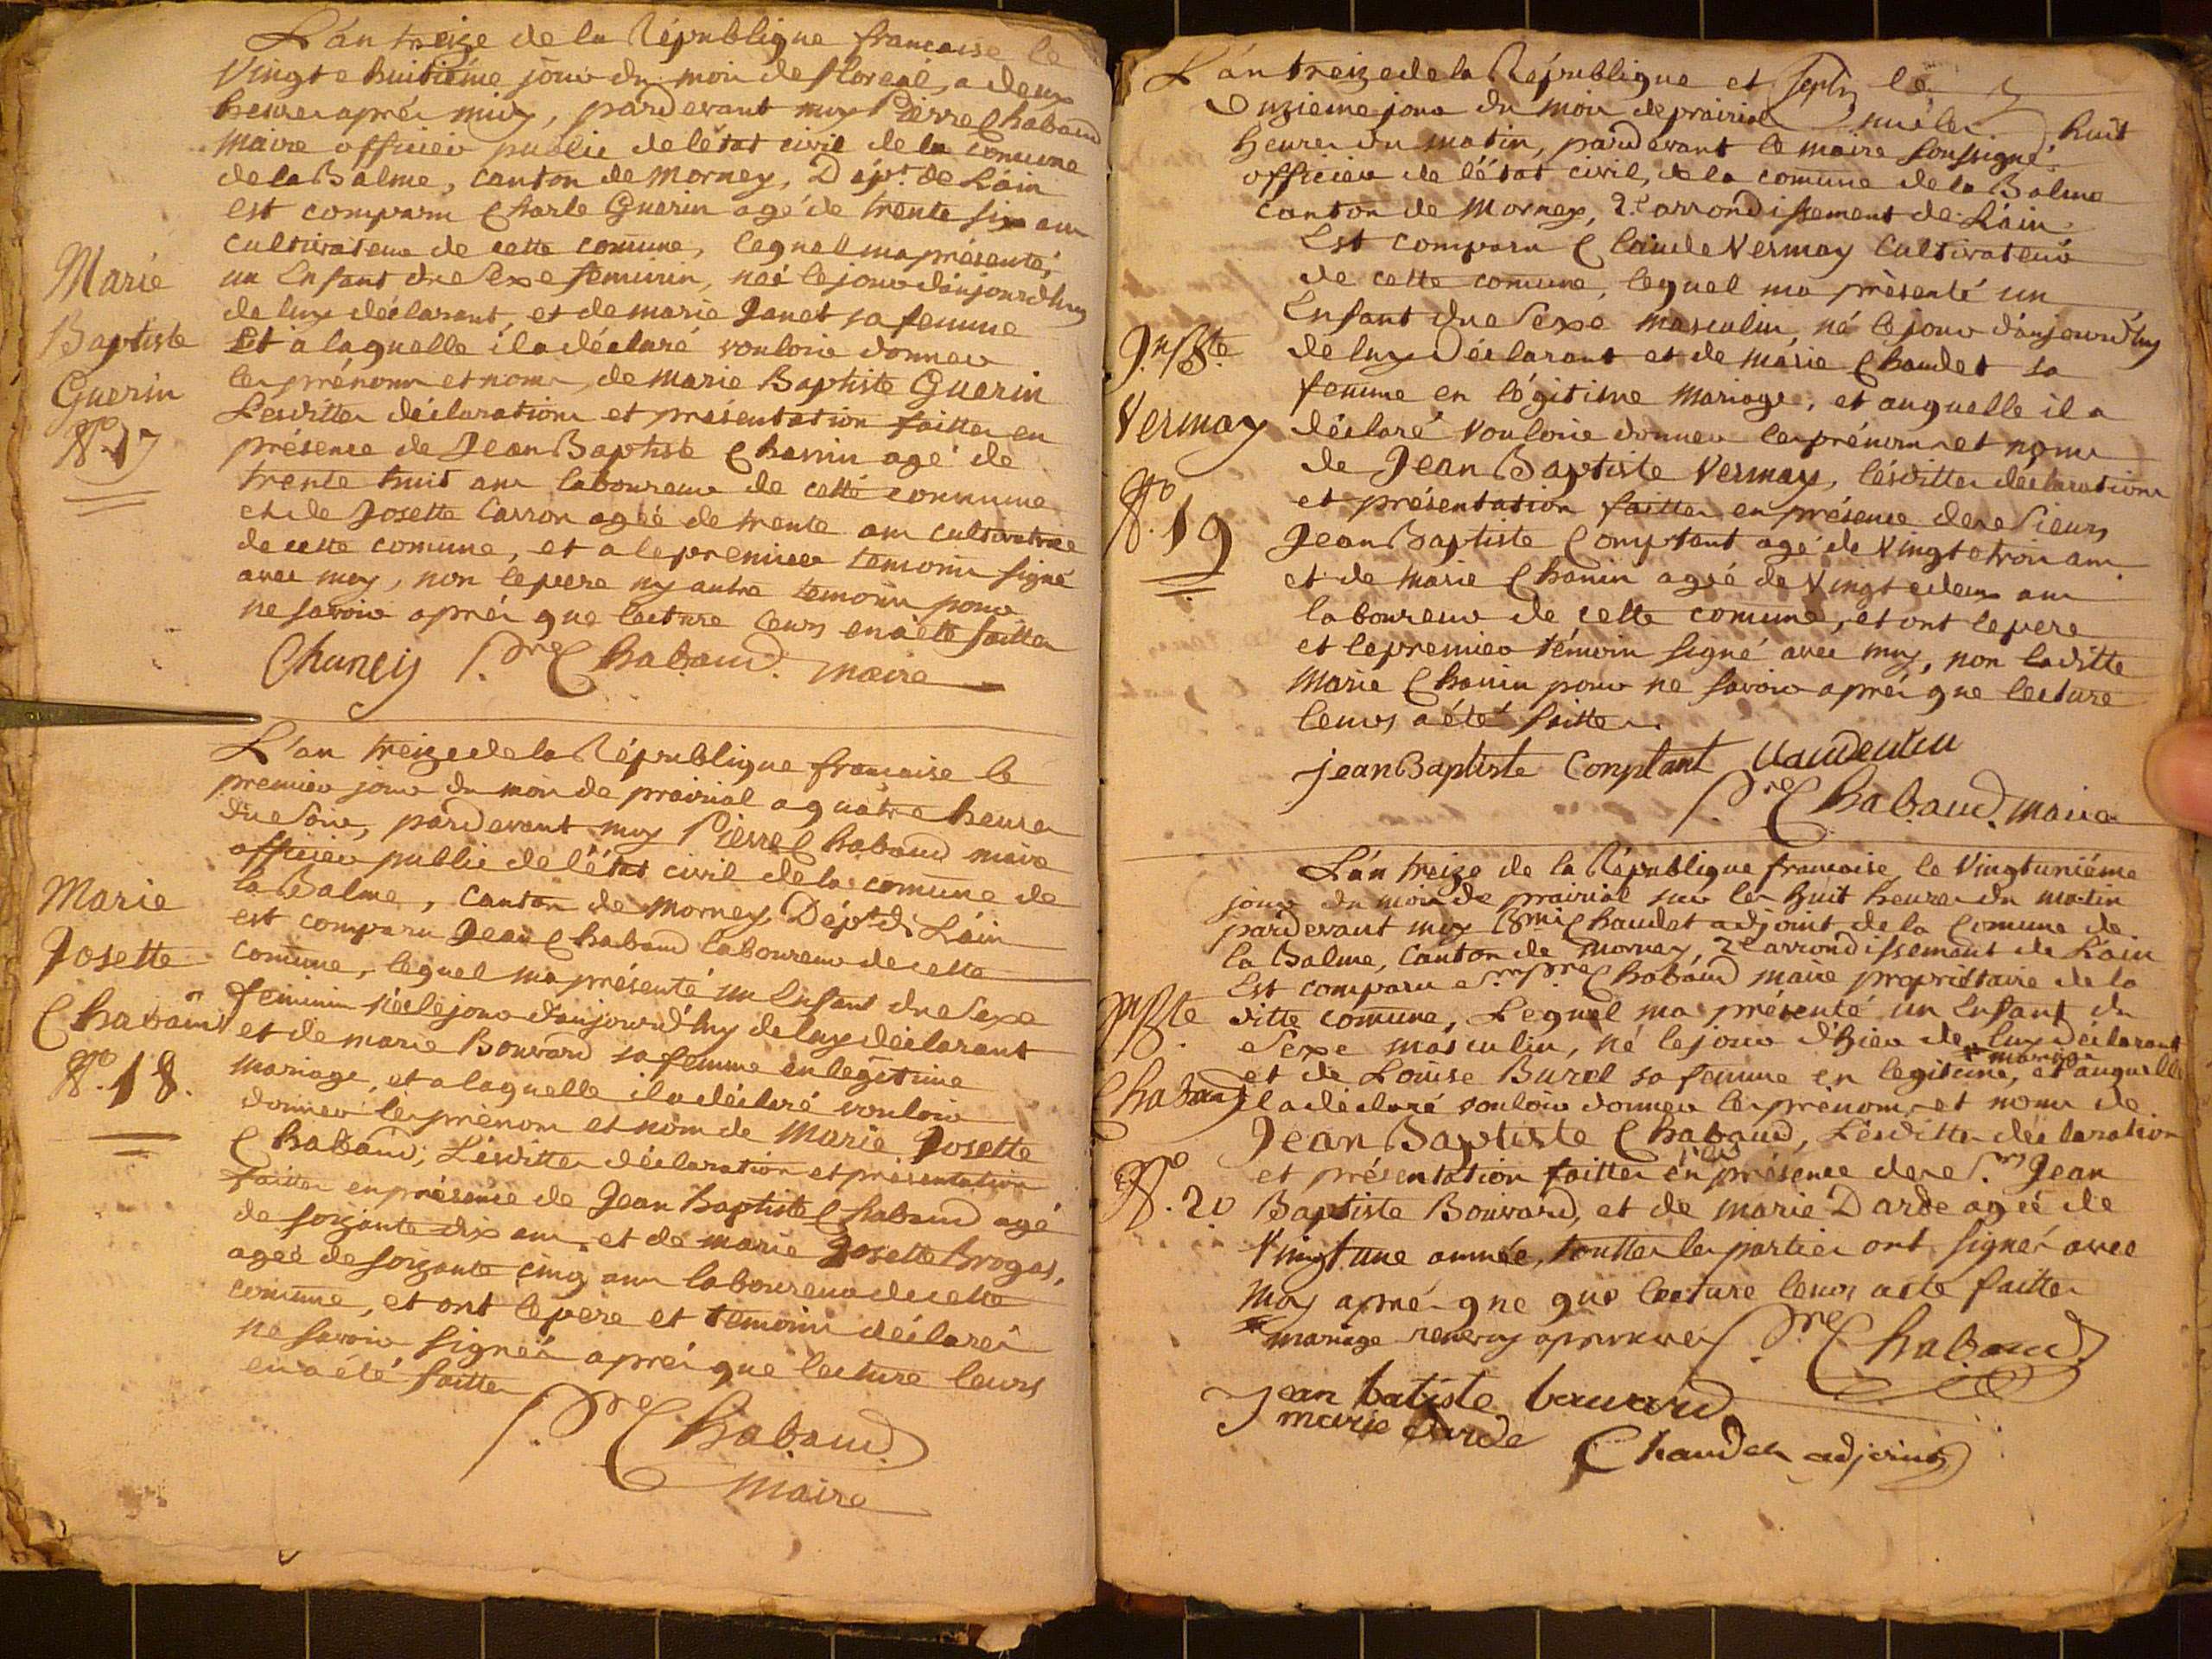 L'án treize de la République francaise le
Vingt e huitiéme jour du mois de floreal, a deux
heures aprés midy, pardevant moy Pierre Chabaud
Maire officier public de létat civil de la comune
de la Balme, canton de Mornay, Dépt. de L'ain
est comparu Charle Guerin agé de trente six ans
cultivateur de cette comune, lequel ma présenté,
un Enfant du Sexe feminin, neé le jour d'aujourd'huy
de luy déclarant, et de marie Janet sa femme
Et a laquelle il a déclaré vouloir donner
les prénoms et noms, de Marie Baptiste Guerin
Lesdittes déclarations et présentation faittes en
présence de Jean Baptiste Chanin agé de
trente huit ans laboureur de cette commune
et de Josette Carron agéé de trente ans cultivatrice
de cette comune, et a le premier temoins signé
avec moy, non le pere ny autre temoins pour
ne savoir aprés que lecture leurs en a été faittes
Marie
Baptiste
Guerin
No. 17
P.re Chabaud. maire
L'an treize de la République francaise le
premier jour du mois de prairial a quatre heures
du Soir, pardevant moy Pierre Chabaud maire
officier public de l'état civil de la comune de
la Balme, canton de Mornay, Dépt. de L'ain
est comparu Jean Chabaud laboureur de cette
comune, lequel ma présenté un Enfant du Sexe
feminin néé le jour d'aujourd'huy de luy déclarant
et de marie Bouvard sa femme en legitime
mariage, et a laquelle il a déclaré vouloir
donner les prénom et nom de Marie Josette
Chabaud; Lésdittes déclaration et présentation
faittes en présence de Jean Baptiste Chabaud agé
de soizante dix ans, et de marie Josette
ageé de soizante cinq ans laboureur de cette
comune, et ont le pere et temoins déclarés
ne savoir signér aprés que lecture leurs
en a été faittes
Marie
Josette
Chabaud
No. 18.
P.re Chabaud
Maire
L'án treize de la République et le
onzieme jour du mois de prairial sur les huit
heures du matin, pardevant le maire soussigné
officier de létat civil, de la comune de la Balme
canton de Mornay, 2.e arrondissement de L'ain
Est comparu Claude Vermay Cultivateur
de cette comune, lequel ma présenté un
Enfant du Sexe masculin, né le jour d'aujourd'huy
de luy déclarant et de marie Chaudet sa
femme en légitime Mariage, et auquelle il a
déclaré vouloir donner les prénoms et noms
de Jean Baptiste Vermay, lésdittes déclarations
et présentation faittes en présence de Sieurs
Jean Baptiste Comptant agé de Vingt e trois ans
et de Marie Chanin agéé de Vingt e deux ans
laboureur de cette comune, et ont le pere
et le premier témoin signé avec moy, non laditte
Marie Chanin pour ne savoir aprés que lecture
leurs a été faittes.
Jn Bte
Vermay
No. 19
jean Baptiste Conptant
P.re Chabaud. Maire
L'án treize de la République francaise, le Vingtuniéme
jour du mois de prairial sur les huit heures du matin
pardevant moy Chaudet adjoint de la Comune de
la Balme, Canton de Mornay, 2e arrondissement de L'ain
Est comparu Sr. Pre. Chabaud maire propriétaire de la
ditte comune, Lequel ma présenté un Enfant du
Sexe masculin, né le jour d'hier de luy déclarant
et de Louise Burel sa femme en legitime, * mariage et auquelle
il a déclaré vouloir donner les prénoms et noms de
Jean Baptiste Chabaud, Lésdittes déclaration
et présentation faittes en présence de Sr. Jean
Baptiste Bouvard, et de marie Darde agéé de
Vingt une année, touttes les parties ont signér avec
moy aprés que que lecture leurs a été faittes
* mariage renvoy
Jn Bte
Chabaud
No. 20
P.re Chabaud
Jean batiste bouvard
marie darde
Chaudet adjoint